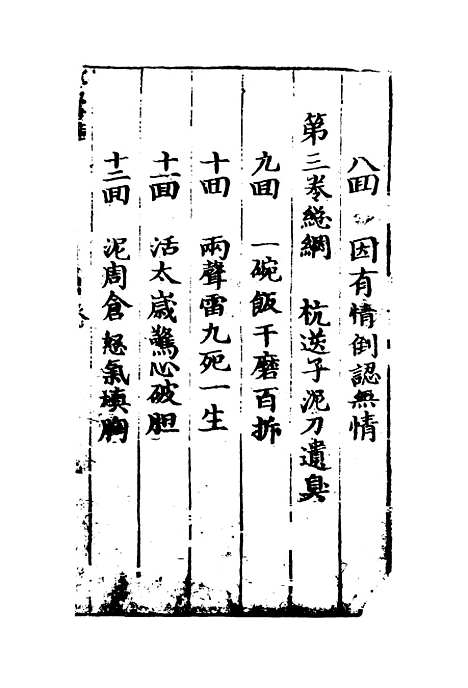 八回 因有情倒認無情
第三卷總綱 杭送子泥刀遺臭
九回 一碗飯千磨百折
十回 兩聲雷九死一生
十一回 活太歲驚心破胆
十二回 泥周倉怒氣填胸